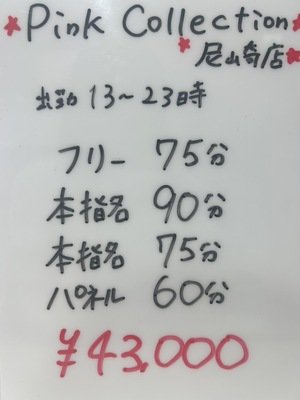 Pink Collection
尼崎店
出勤 13~23時
フリー 75分
本指名 90分
本指名 75分
パネル 60分
¥43,000